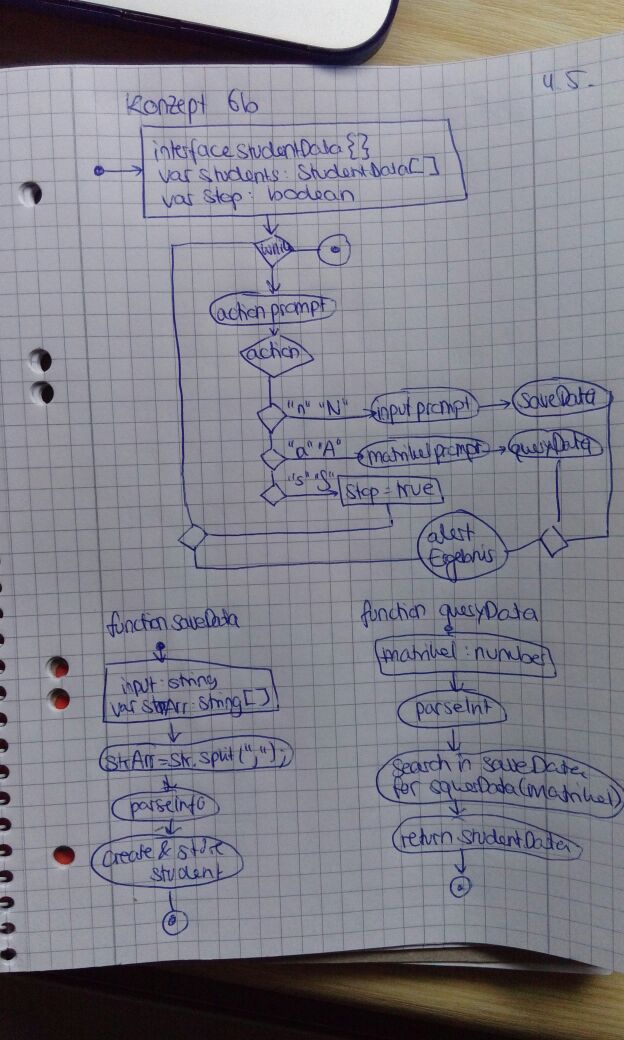 Konzept 6b
4.5.
interface StudentData {}
var students: StudentData[]
var stop: boolean
while
action prompt
action
"n" "N"
input prompt
saveData
"a" "A"
matrikel prompt
queryData
"s" "S"
stop = true
alert
Ergebnis
function saveData
input: string
var strArr: string[]
strArr = str.split(",");
parseInfo
create & store
student
function queryData
matrikel: number
parseInt
search in saveData
for squeryData(matrikel)
return StudentData